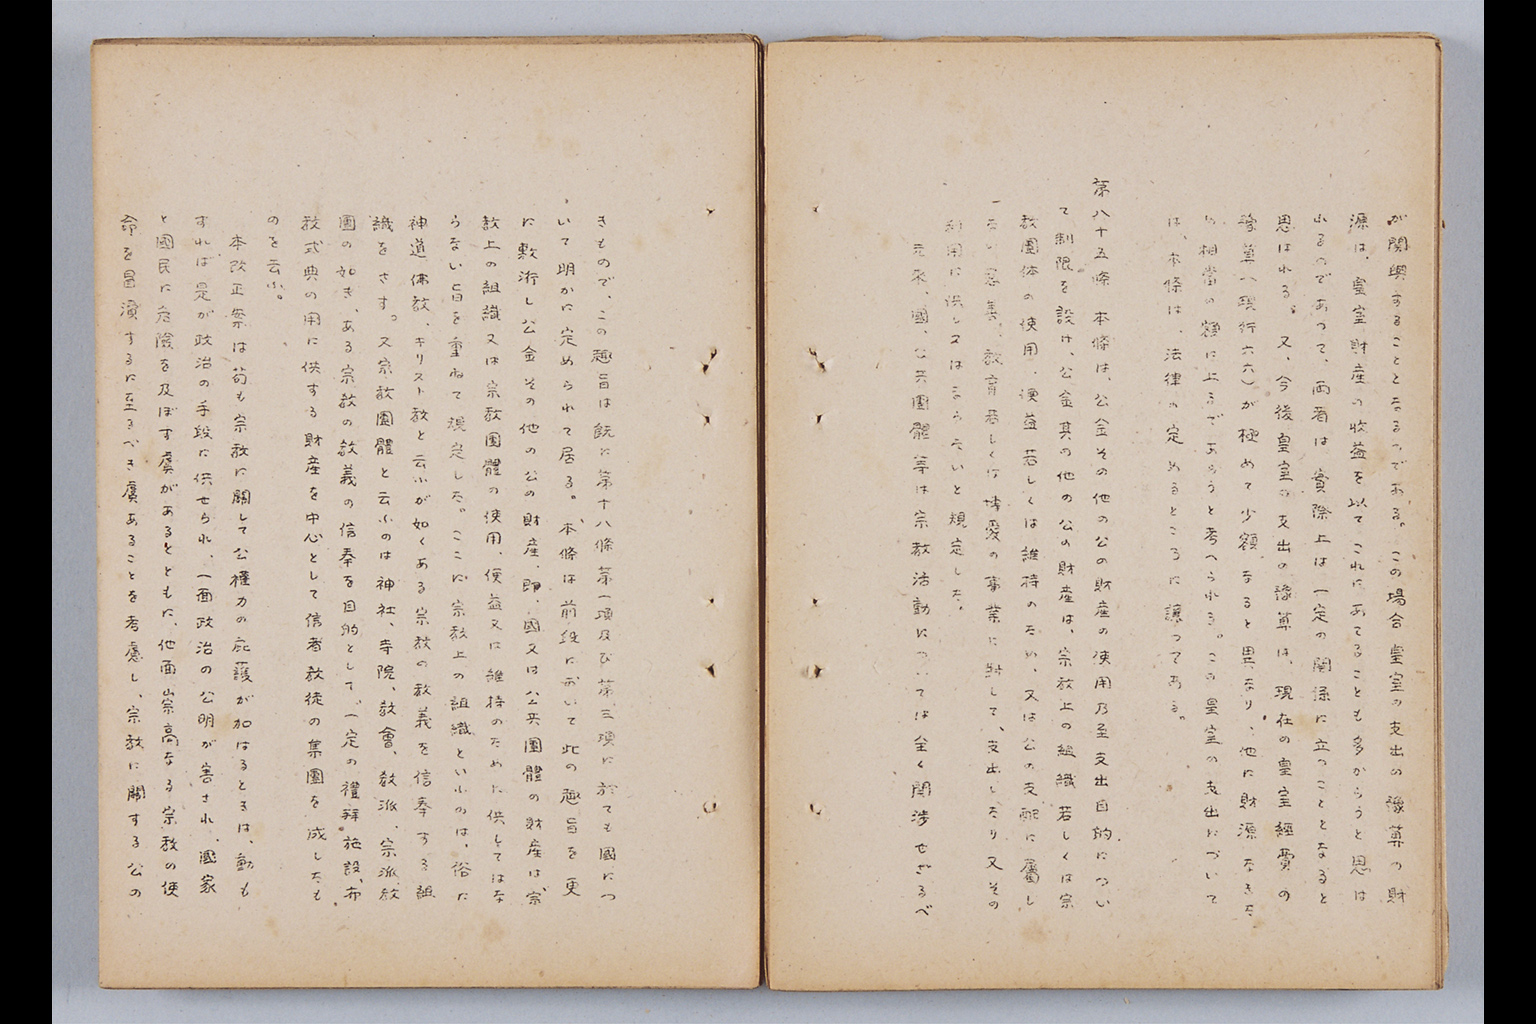 が關與することとなるのである。この場合皇室の支出の豫算の財
源は、皇室財産の收益を以てこれにあてることも多からうと思は
れるのであつて、両者は實際上は一定の關係に立つこととなると
思はれる。又、今後皇室の支出の豫算は、現在の皇室經費の
豫算(現行六六)が極めて少額なると異なり、他に財源なきた
め相當の額に上るであらうと考へられる。この皇室の支出について
は、本條は、法律の定めるところに讓つてある。
第八十五條 本條は、公金その他の公の財産の使用乃至支出目的につい
て制限を設け、公金其の他の公の財産は、宗敎上の組織若しくは宗
敎團体の使用、便益若しくは維持のため、又は公の支配に屬し
ない慈善、敎育若しくは博愛の事業に對して、支出したり又その
利用に供し又はならないと規定した。
元來、國、公共團體等は宗敎活動については全く關渉せざるべ
きもので、この趣旨は既に第十八條第一項及び第三項に於ても國につ
いて明かに定められて居る。本條は前段において此の趣旨を更
に敷衍し公金その他の公の財産、即、國又は公共團體の財産は、宗
敎上の組織又は宗敎團體の使用、便益又は維持のために供してはな
らない旨を重ねて規定した。ここに宗敎上の組織といふのは、俗に
神道佛敎、キリスト敎と云ふが如くある宗敎の敎義を信奉する組
織をさす。又宗敎團體と云ふのは神社、寺院、敎會、敎派、宗派、敎
團の如き、ある宗敎の敎義の信奉を目的として、一定の禮拜施設、布
敎式典の用に供する財産を中心として信者敎徒の集團を成したも
のを云ふ。
本改正案は苟も宗敎に關して公權力の庇護が加はるときは、動も
すれば是が政治の手段に供せられ、一面政治の公明が害され、國家
と國民に危險を及ぼす虞があるとともに、他面崇高なる宗敎の使
命を冒瀆するに至るべき虞あることを考慮し、宗敎に關する公の